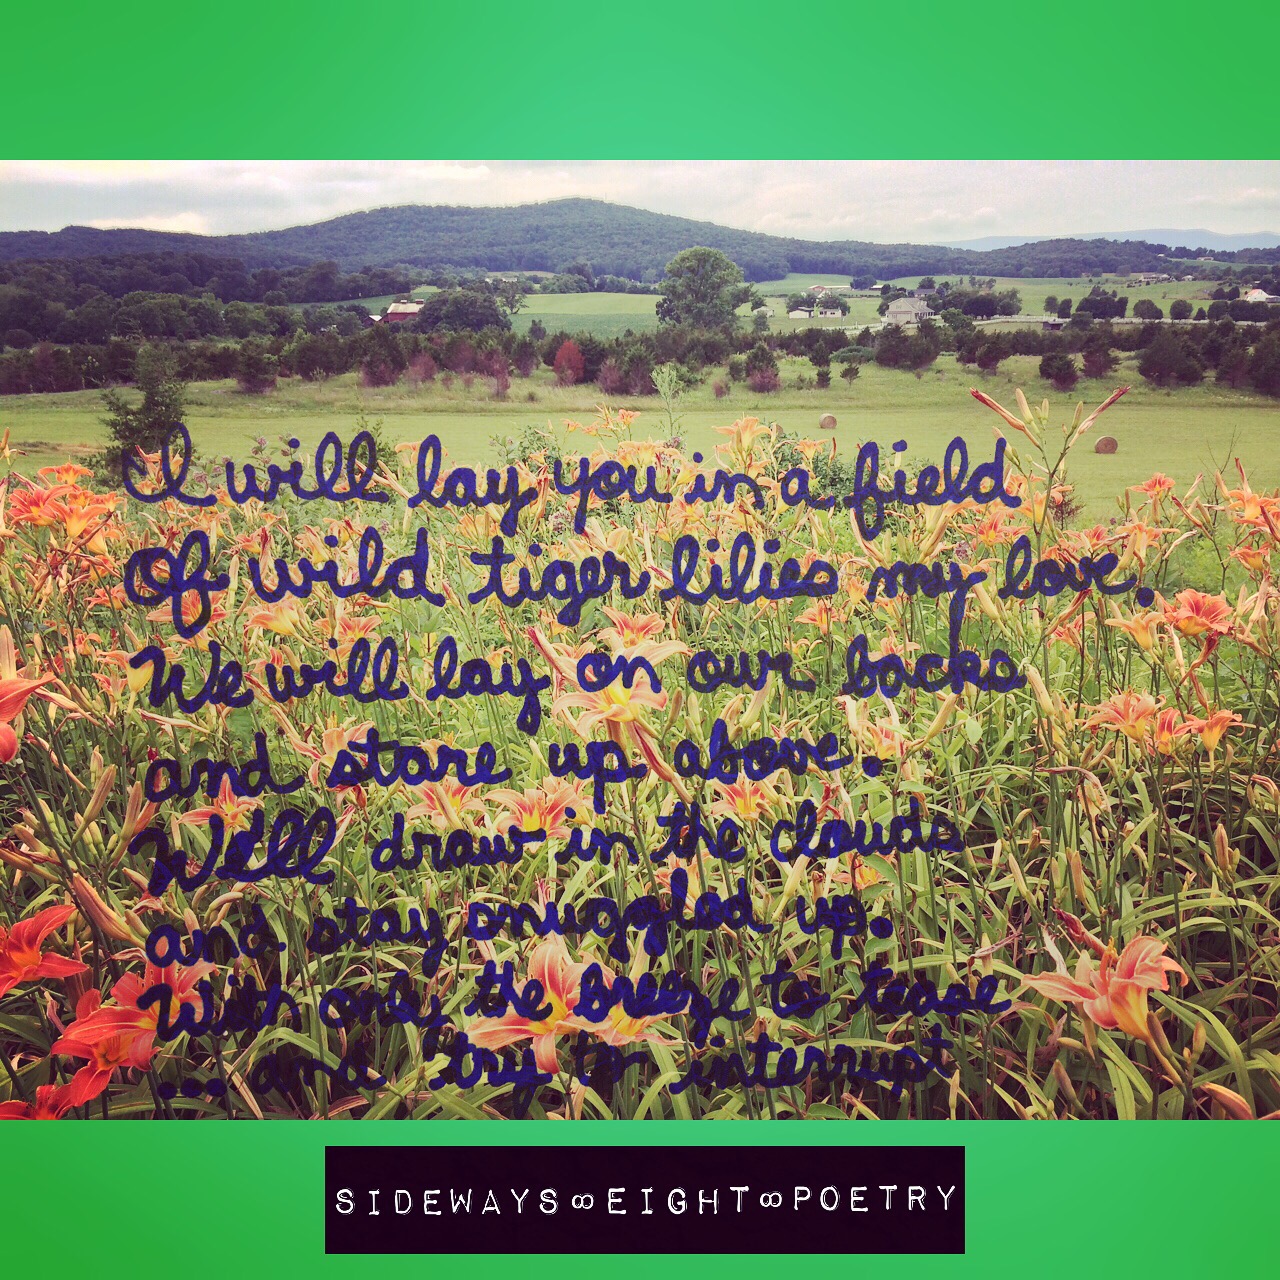 I will lay you in a field
Of wild tiger lilies my love.
We will lay on our backs
and stare up above.
We'll draw in the clouds
and stay snuggled up.
With only the breeze to tease
...and "try" to interrupt
SIDEWAYS∞EIGHT∞POETRY